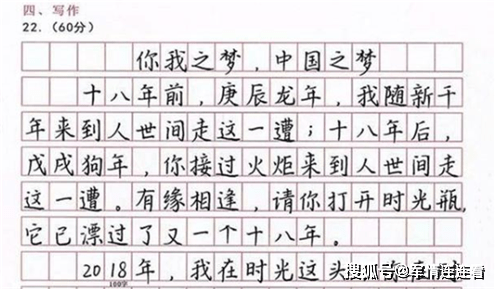 四、写作
22.（60分）
你我之梦，中国之梦
十八年前，庚辰龙年，我随新千
年来到人世间走这一遭；十八年后，
戊戌狗年，你接过火炬来到人世间走
这一遭。有缘相逢，请你打开时光瓶，
它已漂过了又一个十八年。
2018年，我在时光这头
100字
搜狐号@军情连连看